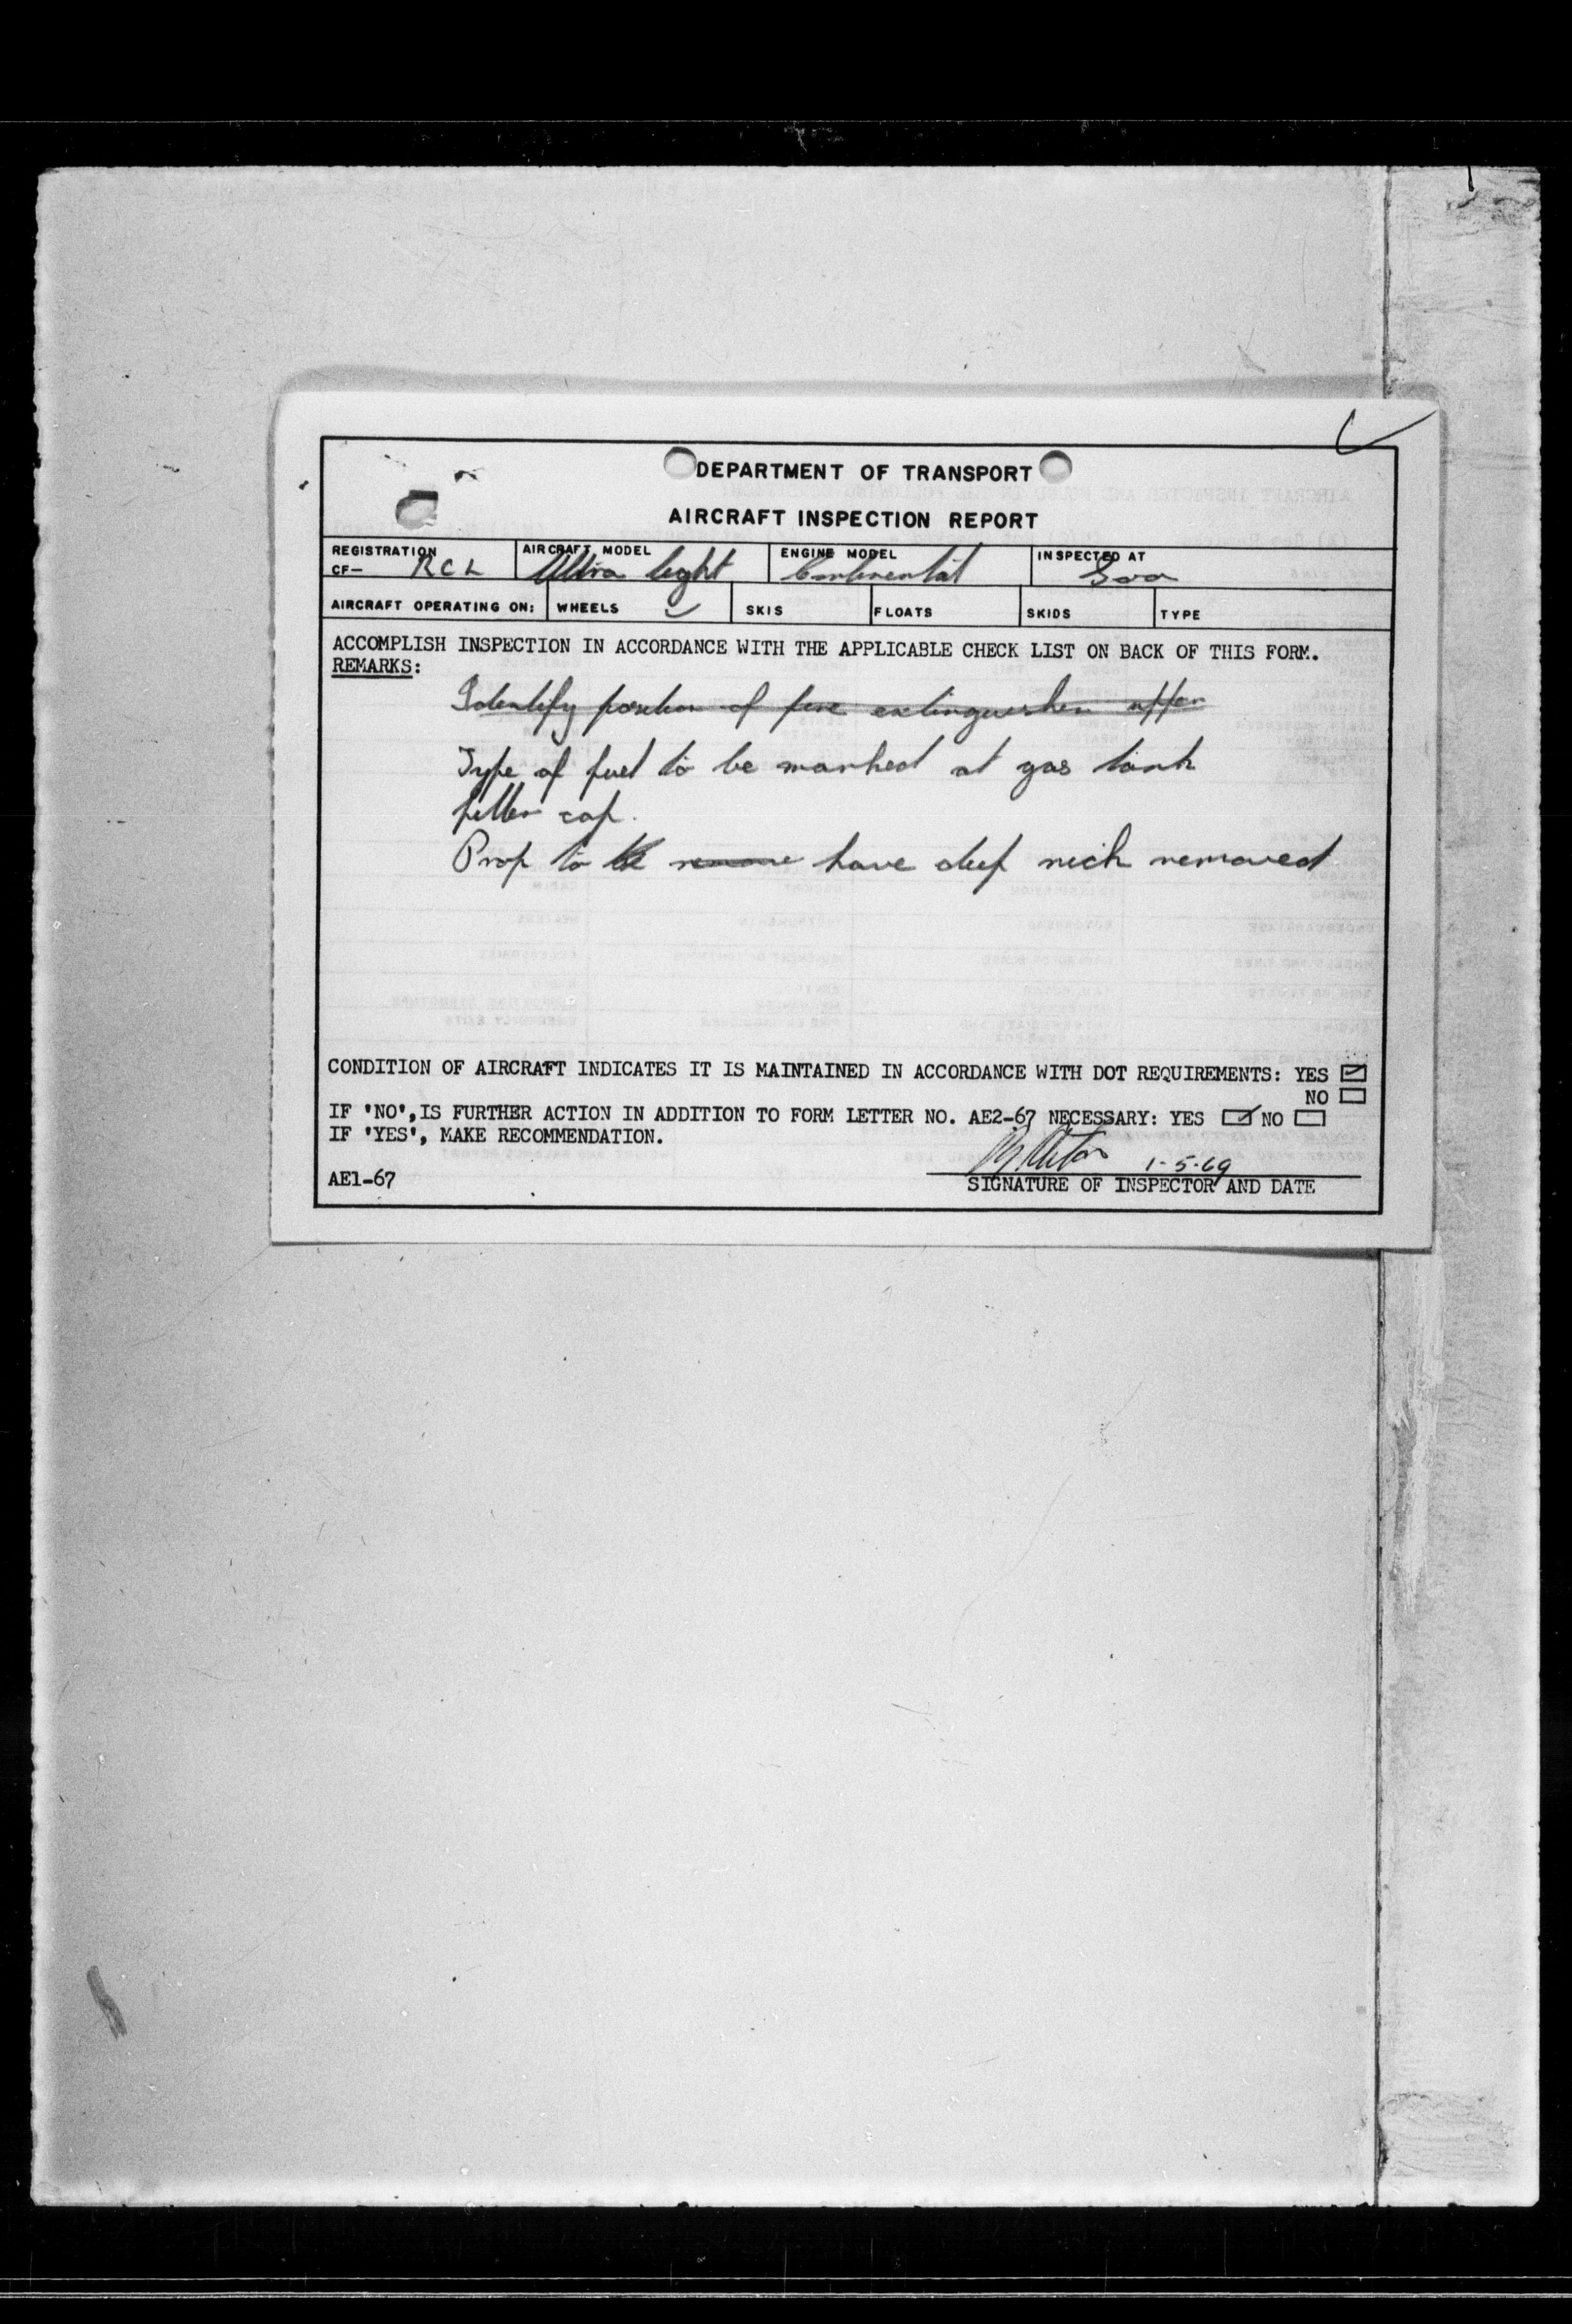 DEPARTMENT OF TRANSPORT
AIRCRAFT INSPECTION REPORT
REGISTRATION CF- RCL AIRCRAFT MODEL Ultra light ENGINE MODEL Continental INSPECTED AT Soo
AIRCRAFT OPERATING ON: WHEELS ✓ SKIS FLOATS SKIDS TYPE
ACCOMPLISH INSPECTION IN ACCORDANCE WITH THE APPLICABLE CHECK LIST ON BACK OF THIS FORM.
REMARKS:
Identify position of fire extinguisher
Type of fuel to be marked at gas tank
filler cap.
Prop to be remove have deep nick removed
CONDITION OF AIRCRAFT INDICATES IT IS MAINTAINED IN ACCORDANCE WITH DOT REQUIREMENTS: YES ☑
NO ☐
IF 'NO', IS FURTHER ACTION IN ADDITION TO FORM LETTER NO. AE2-67 NECESSARY: YES ☑ NO ☐
IF 'YES', MAKE RECOMMENDATION.
1-5-69
AE1-67 SIGNATURE OF INSPECTOR AND DATE